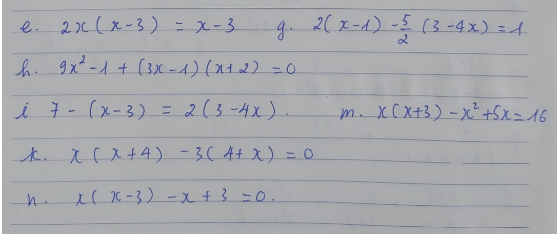 e. 2x(x-3) = x-3 g. 2(x-1) - 5/2 (3-4x) = 1
h. 9x² - 1 + (3x-1)(x+2) = 0
i 7 - (x-3) = 2(3-4x). m. x(x+3) - x² + 5x = 16
k. x(x+4) - 3(4+x) = 0
n. x(x-3) - x + 3 = 0.